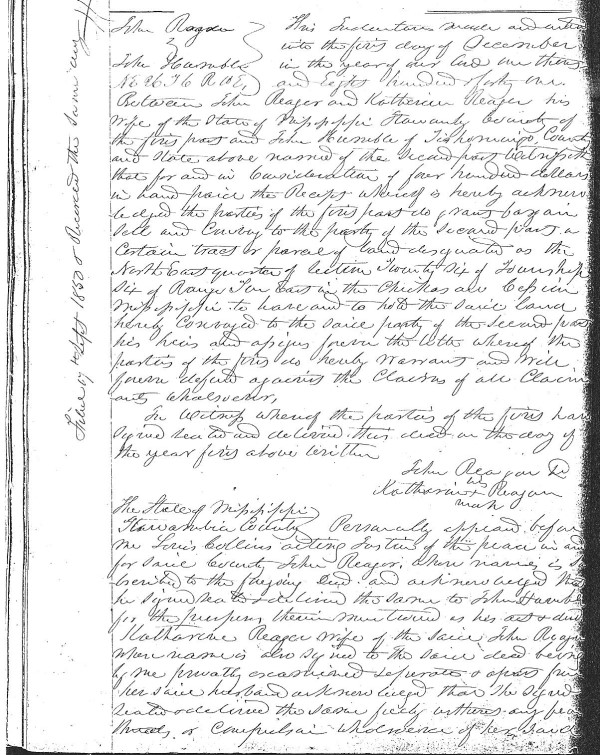 John Reagor This Indenture made and entered
& into the first day of December
John Humble in the year of our Lord one thous
NE 26 T6 R10 E and Eight hundred forty one
Between John Reager and Katherine Reager his
Wife of the State of Mississippi Itawamba County of
the first part and John Humble of Tishomingo County
and State above named of the Second part Witnesseth
that for and in Consideration of four hundred dollars
in hand paid the Receipt whereof is hereby acknow
ledged the parties of the first part do grant bargain
Sell and Convey to the party of the Second part a
Certain tract or parcel of land designated as the
North East quarter of Section Twenty Six of Township
Six of Range Ten East in the Chickasaw Cession
Mississippi to have and to hold the said land
hereby Conveyed to the said party of the Second part
his heirs and assigns forever the title whereof the
parties of the first do hereby Warrant and Will
forever defend against the Claims of all Claim
ants whatsoever,
In Witness whereof the parties of the first have
signed sealed and delivered this deed on the day of
the year first above written
John Reagor
Katharine her Reagor
mark
The State of Mississippi
Itawamba County Personally appeared before
me Louis Collins acting Justice of the peace in and
for said County John Reager, whose name is s
bscribed to the foregoing Deed and acknowledged that
he signed sealed & delivered the same to John Humble
for the purposes therein mentioned as his act & deed
Katharine Reager wife of the said John Reager
whose name is also signed to the said deed being
by me privately examined separate & apart from
her said husband acknowledged that She signed
sealed & delivered the same freely without any fear
threat, or Compulsion whatsoever of her said
Filed 17 Sept 1850 & Recorded the same day